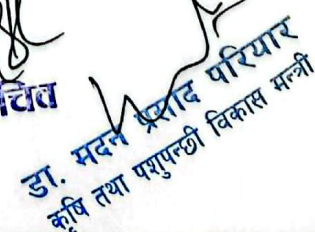 चित
डा. मदन प्रसाद परियार
कृषि तथा पशुपन्छी विकास मन्त्री